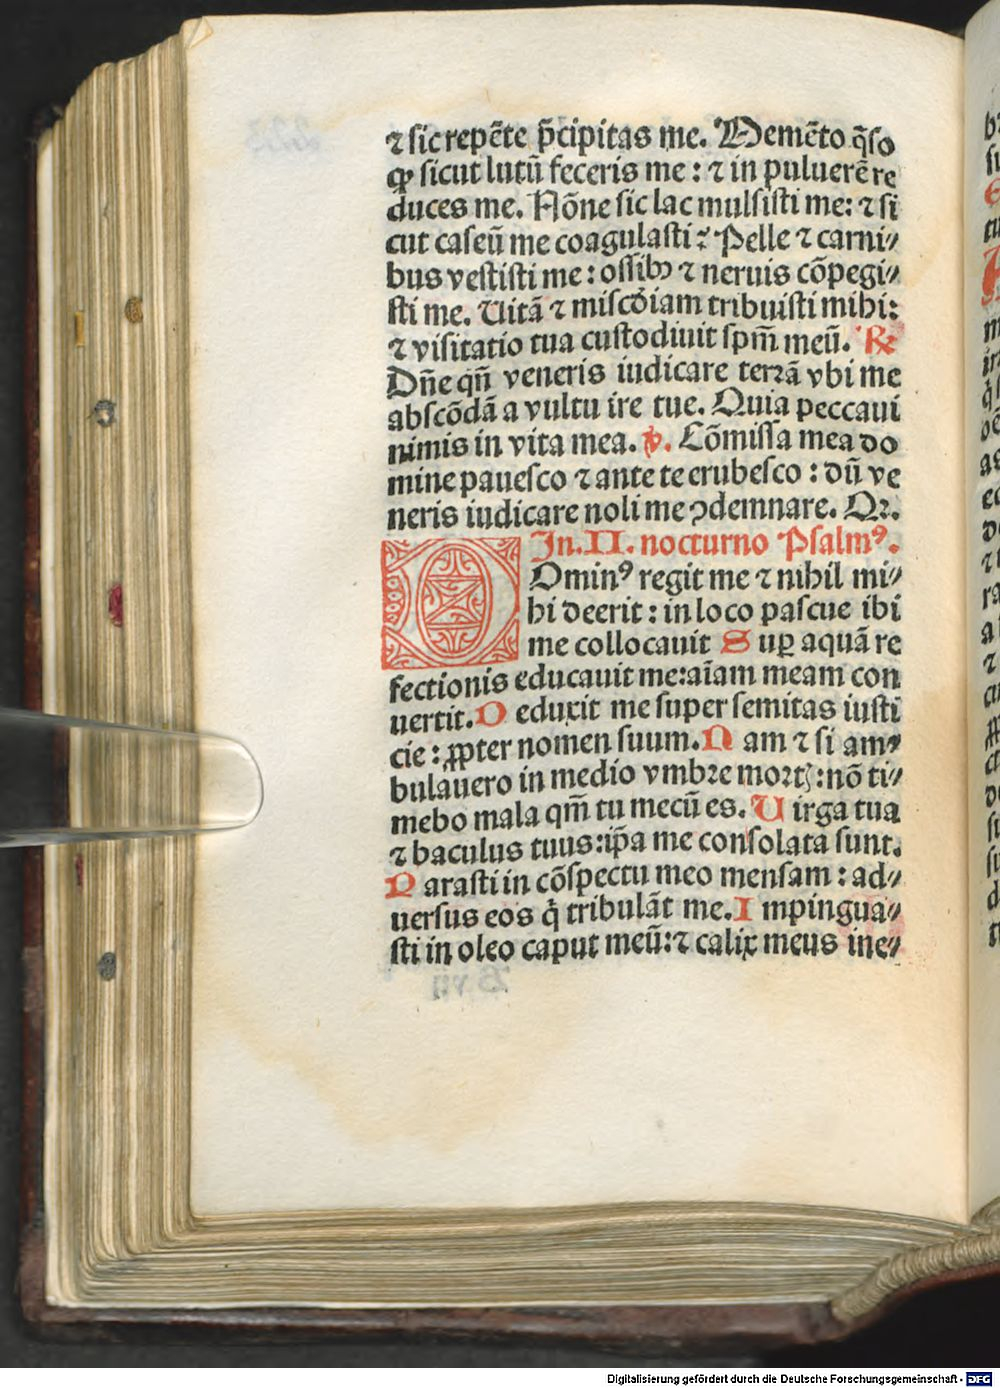 ⁊ sic repẽte p̃cipitas me. Memẽto q̃so
ꝙ sicut lutũ feceris me : ⁊ in puluerẽ re
duces me. Nõne sic lac mulsisti me: ⁊ si
cut caseũ me coagulasti? Pelle ⁊ carni⸗
bus vestisti me : ossibꝫ ⁊ neruis cõpegi⸗
sti me. Uitã ⁊ miscḋiam tribuisti mihi:
⁊ visitatio tua custodiuit spm̃ meũ. ℟
Dñe qñ veneris iudicare terrã vbi me
abscõdã a vultu ire tue. Quia peccaui
nimis in vita mea. ℣. Cõmissa mea do
mine pauesco ⁊ ante te erubesco : dũ ve
neris iudicare noli me ꝯdemnare. Qꝛ.
In .II. nocturno Psalmꝰ.
DOminꝰ regit me ⁊ nihil mi⸗
hi deerit : in loco pascue ibi
me collocauit Suꝑ aquã re
fectionis educauit me:aĩam meam con
uertit. Deduxit me super semitas iusti
cie : ꝓpter nomen suum. Nam ⁊ si am⸗
bulauero in medio vmbre mortꝭ : nõ ti⸗
mebo mala qm̃ tu mecũ es. Uirga tua
⁊ baculus tuus:ip̃a me consolata sunt.
Parasti in cõspectu meo mensam : ad⸗
uersus eos q̇ tribulãt me. Impingua⸗
sti in oleo caput meũ:⁊ calix meus ine⸗
Digitalisierung gefördert durch die Deutsche Forschungsgemeinschaft - DFG